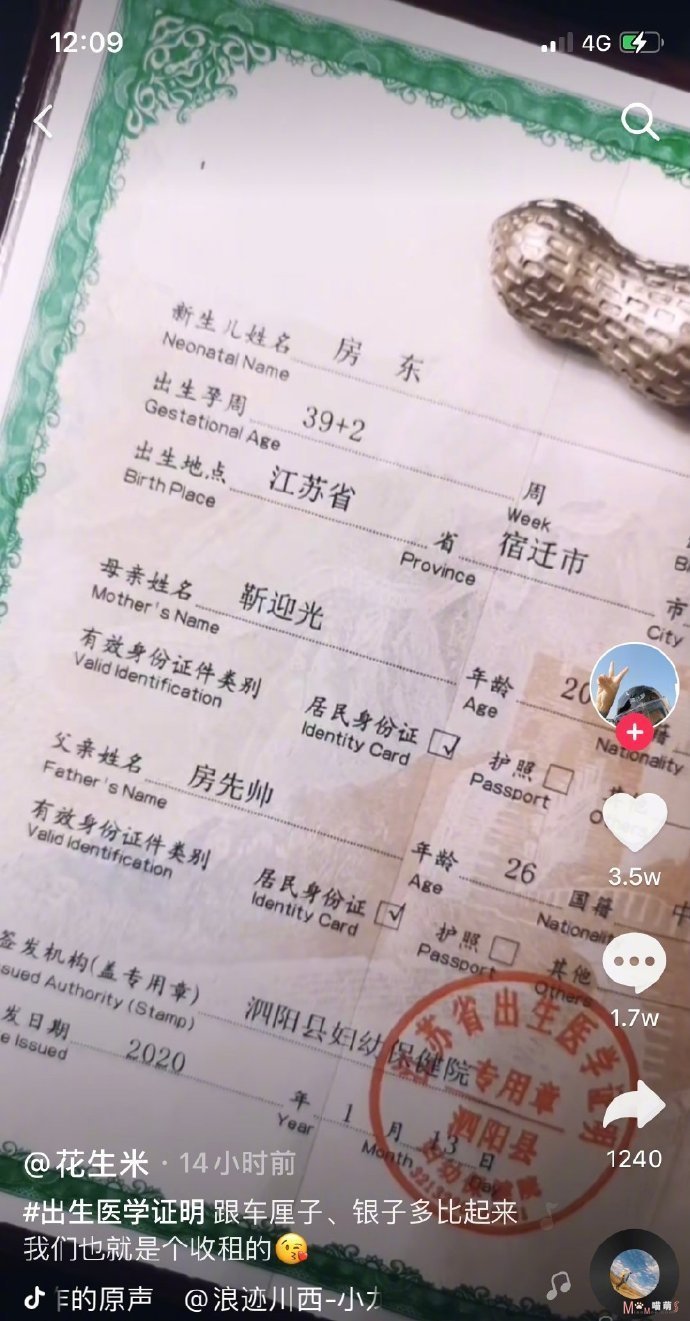 12:09
4G
新生儿姓名 房 东
Neonatal Name
出生孕周 39+2 周
Gestational Age Week
出生地点 江苏省 省 宿迁市 市
Birth Place Province City
母亲姓名 靳迎光 年龄 20
Mother's Name Age Nationality
有效身份证件类别 居民身份证 护照
Valid Identification Identity Card Passport
父亲姓名 房先帅 年龄 26 国籍 中
Father's Name Age Nationality
有效身份证件类别 居民身份证 护照 其他
Valid Identification Identity Card Passport Others
签发机构(盖专用章) 泗阳县妇幼保健院
ssued Authority (Stamp)
发日期 2020 年 1 月 13 日
e Issued Year Month Day
苏省出生医学证明
专用章
泗阳县
3.5w
1.7w
1240
@花生米 · 14小时前
#出生医学证明 跟车厘子、银子多比起来
我们也就是个收租的😘
作的原声 @浪迹川西-小
M M 喵萌